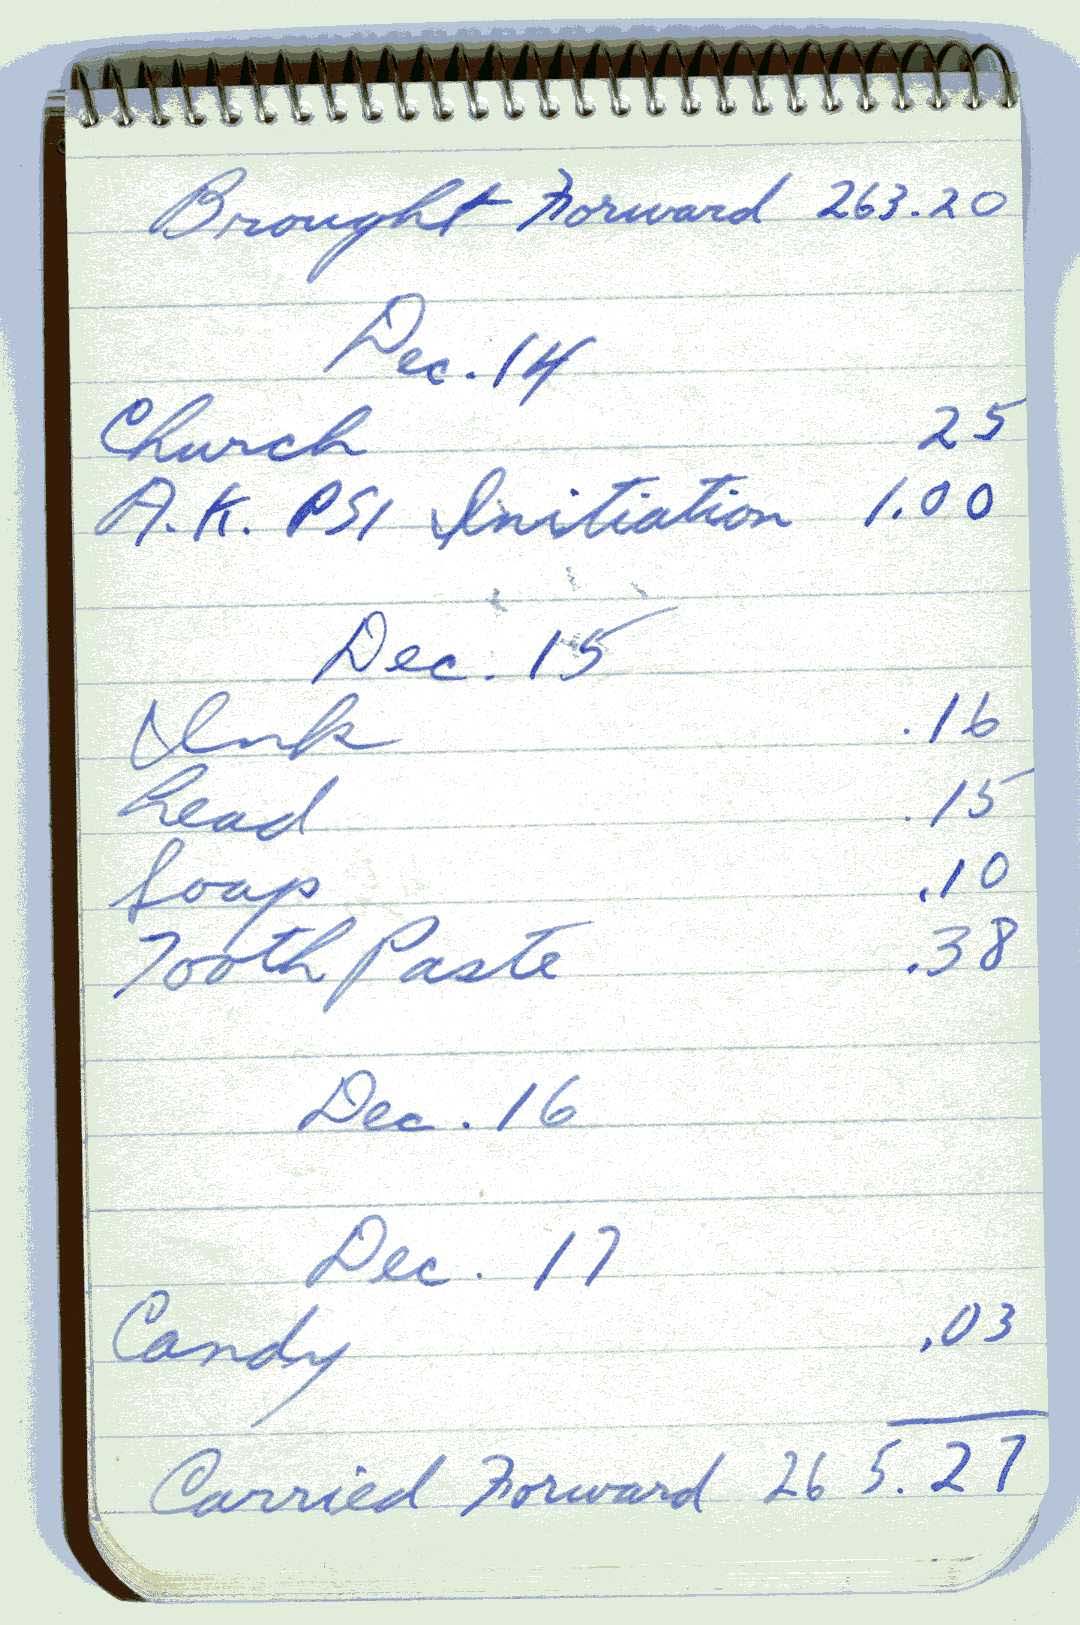 Brought Forward 263.20
Dec. 14
Church 25
A.K. PSI Initiation 1.00
Dec. 15
Ink .16
Lead .15
Soap .10
Tooth Paste .38
Dec. 16
Dec. 17
Candy .03
Carried Forward 265.27